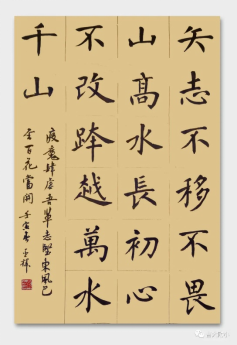 矢志不移不畏
山高水長初心
不改跨越萬水
千山
疫魔肆虐吾輩志堅東風已
至百花當開 壬寅春